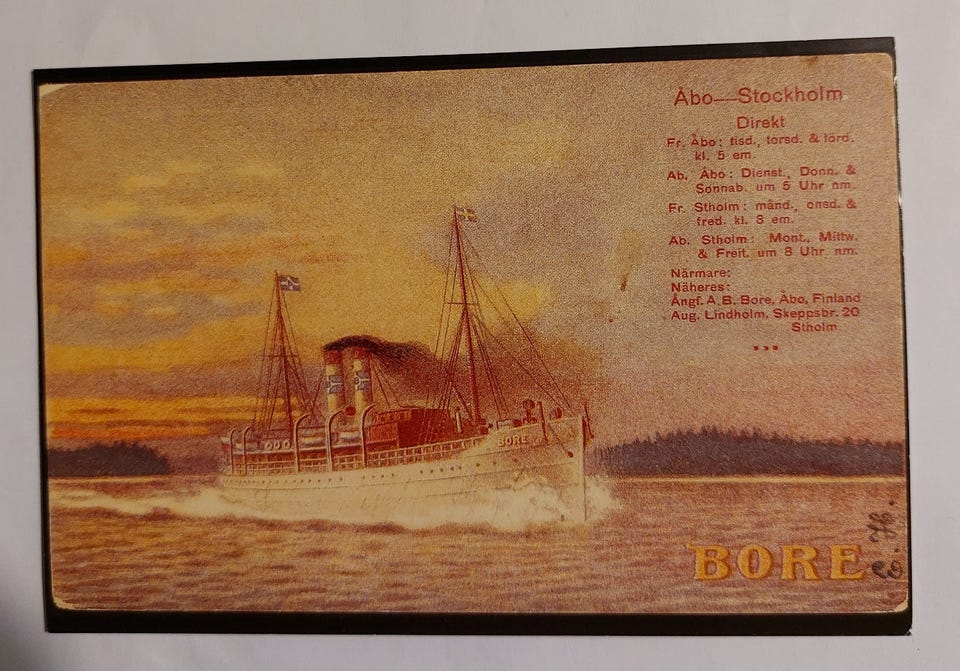 Åbo—Stockholm
Direkt
Fr. Åbo: tisd., torsd. & lörd.
kl. 5 em.
Ab. Åbo: Dienst., Donn. &
Sonnab. um 5 Uhr nm.
Fr. Stholm: månd., onsd. &
fred. kl. 8 em.
Ab. Stholm: Mont., Mittw.
& Freit. um 8 Uhr nm.
Närmare:
Näheres:
Ångf. A.B. Bore, Åbo, Finland
Aug. Lindholm. Skeppsbr. 20
Stholm
BORE
BORE